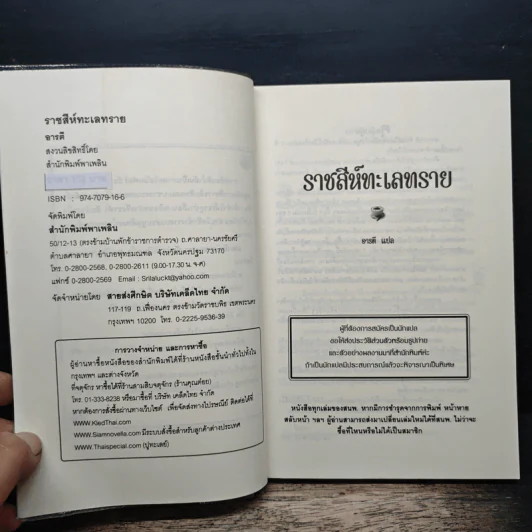 ราชสีห์ทะเลทราย
อารตี
สงวนลิขสิทธิ์โดย
สำนักพิมพ์พาเพลิน
ISBN : 974-7079-16-6
จัดพิมพ์โดย
สำนักพิมพ์พาเพลิน
50/12-13 (ตรงข้ามบ้านพักข้าราชการตำรวจ) ถ.ศาลายา-นครชัยศรี
ตำบลศาลายา อำเภอพุทธมณฑล จังหวัดนครปฐม 73170
โทร. 0-2800-2568, 0-2800-2611 (9.00-17.30 น. จ-ศ)
แฟกซ์ 0-2800-2569 Email : Srilaluckt@yahoo.com
จัดจำหน่ายโดย สายส่งศึกษิต บริษัทเคล็ดไทย จำกัด
117-119 ถ.เฟื่องนคร ตรงข้ามวัดราชบพิธ เขตพระนคร
กรุงเทพฯ 10200 โทร. 0-2225-9536-39
การวางจำหน่าย และการหาซื้อ
ผู้อ่านหาซื้อหนังสือของสำนักพิมพ์ได้ที่ร้านหนังสือชั้นนำทั่วไปทั้งใน
กรุงเทพฯ และต่างจังหวัด
ที่จตุจักร หาซื้อได้ที่ร้านตามสิบจตุจักร (ร้านคุณต๋อย)
โทร. 01-333-8238 หรือมาซื้อที่ บริษัท เคล็ดไทย จำกัด
หากต้องการสั่งซื้อผ่านทางเว็บไซต์ เพื่อจัดส่งทางไปรษณีย์ ติดต่อได้ที่
WWW.KledThai.com
WWW.Siamnovella.com มีระบบสั่งซื้อสำหรับลูกค้าต่างประเทศ
WWW.Thaispecial.com (ปูทะเลย์)
ราชสีห์ทะเลทราย
อารตี แปล
ผู้ที่ต้องการสมัครเป็นนักแปล
ขอให้ส่งประวัติส่วนตัวพร้อมรูปถ่าย
และตัวอย่างผลงานมาที่สำนักพิมพ์ค่ะ
ถ้าเป็นนักแปลมีประสบการณ์แล้วจะพิจารณาเป็นพิเศษ
หนังสือทุกเล่มของสนพ. หากมีการชำรุดจากการพิมพ์ หน้าหาย
สลับหน้า ฯลฯ ผู้อ่านสามารถส่งมาเปลี่ยนเล่มใหม่ได้ที่สนพ. ไม่ว่าจะ
ซื้อที่ไหนหรือไม่ได้เป็นสมาชิก